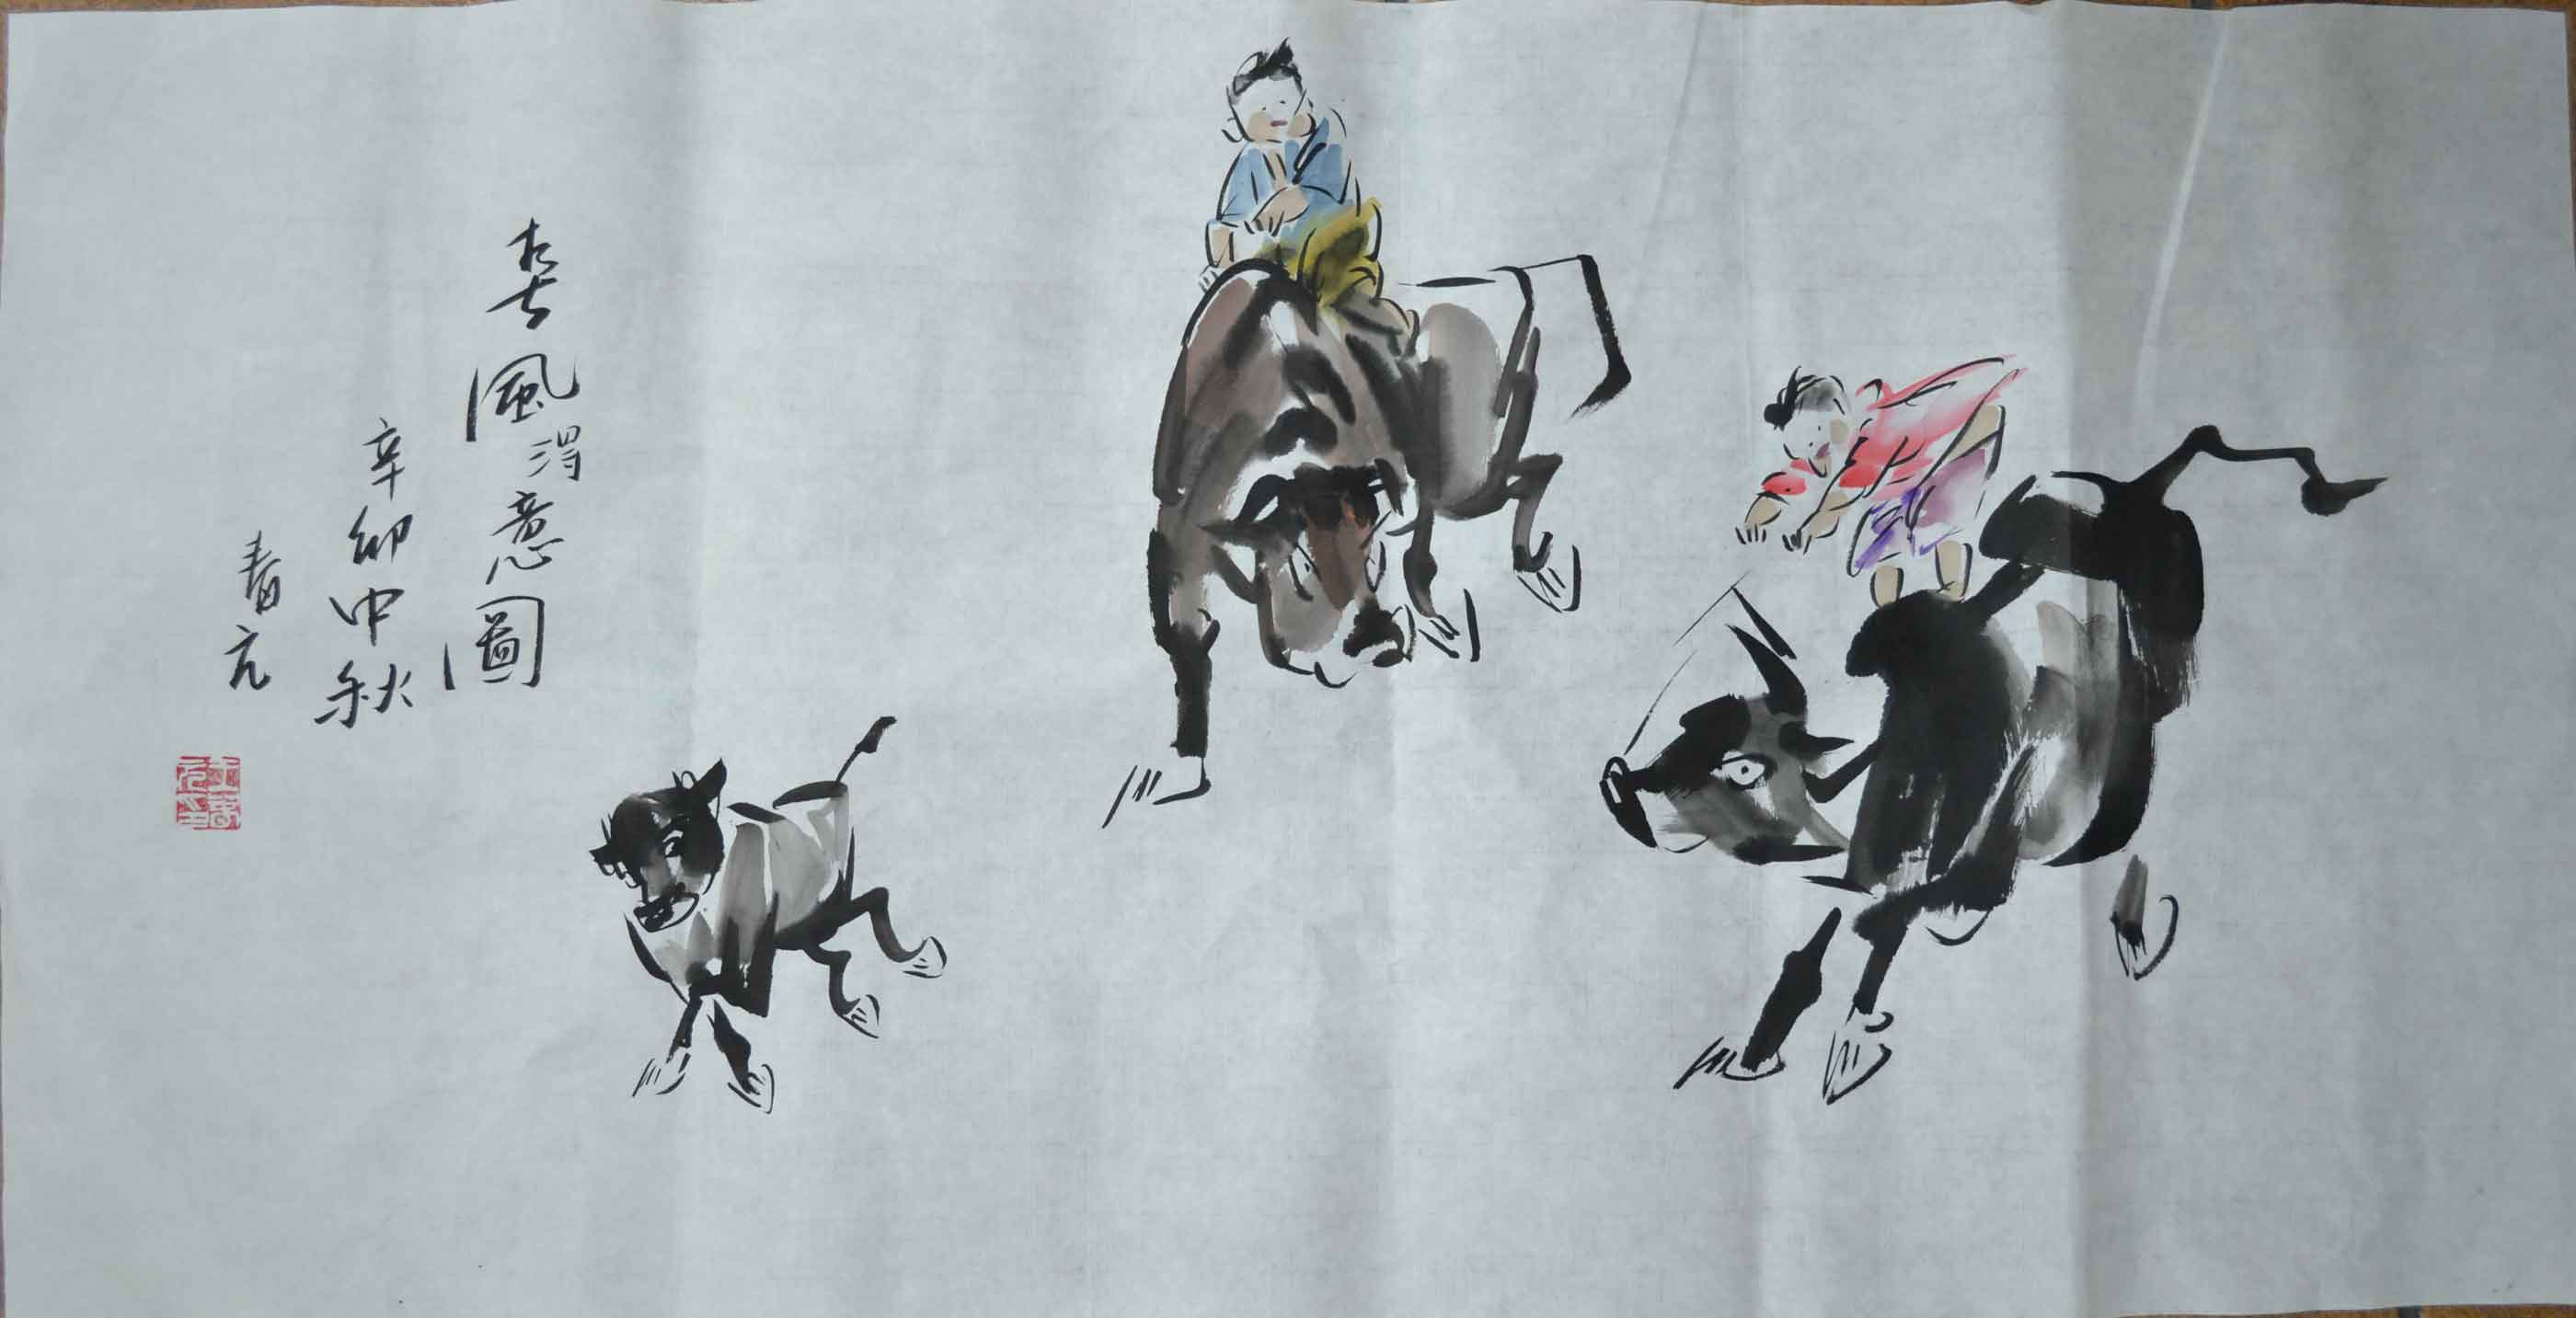 春風得意圖
辛卯中秋
春元